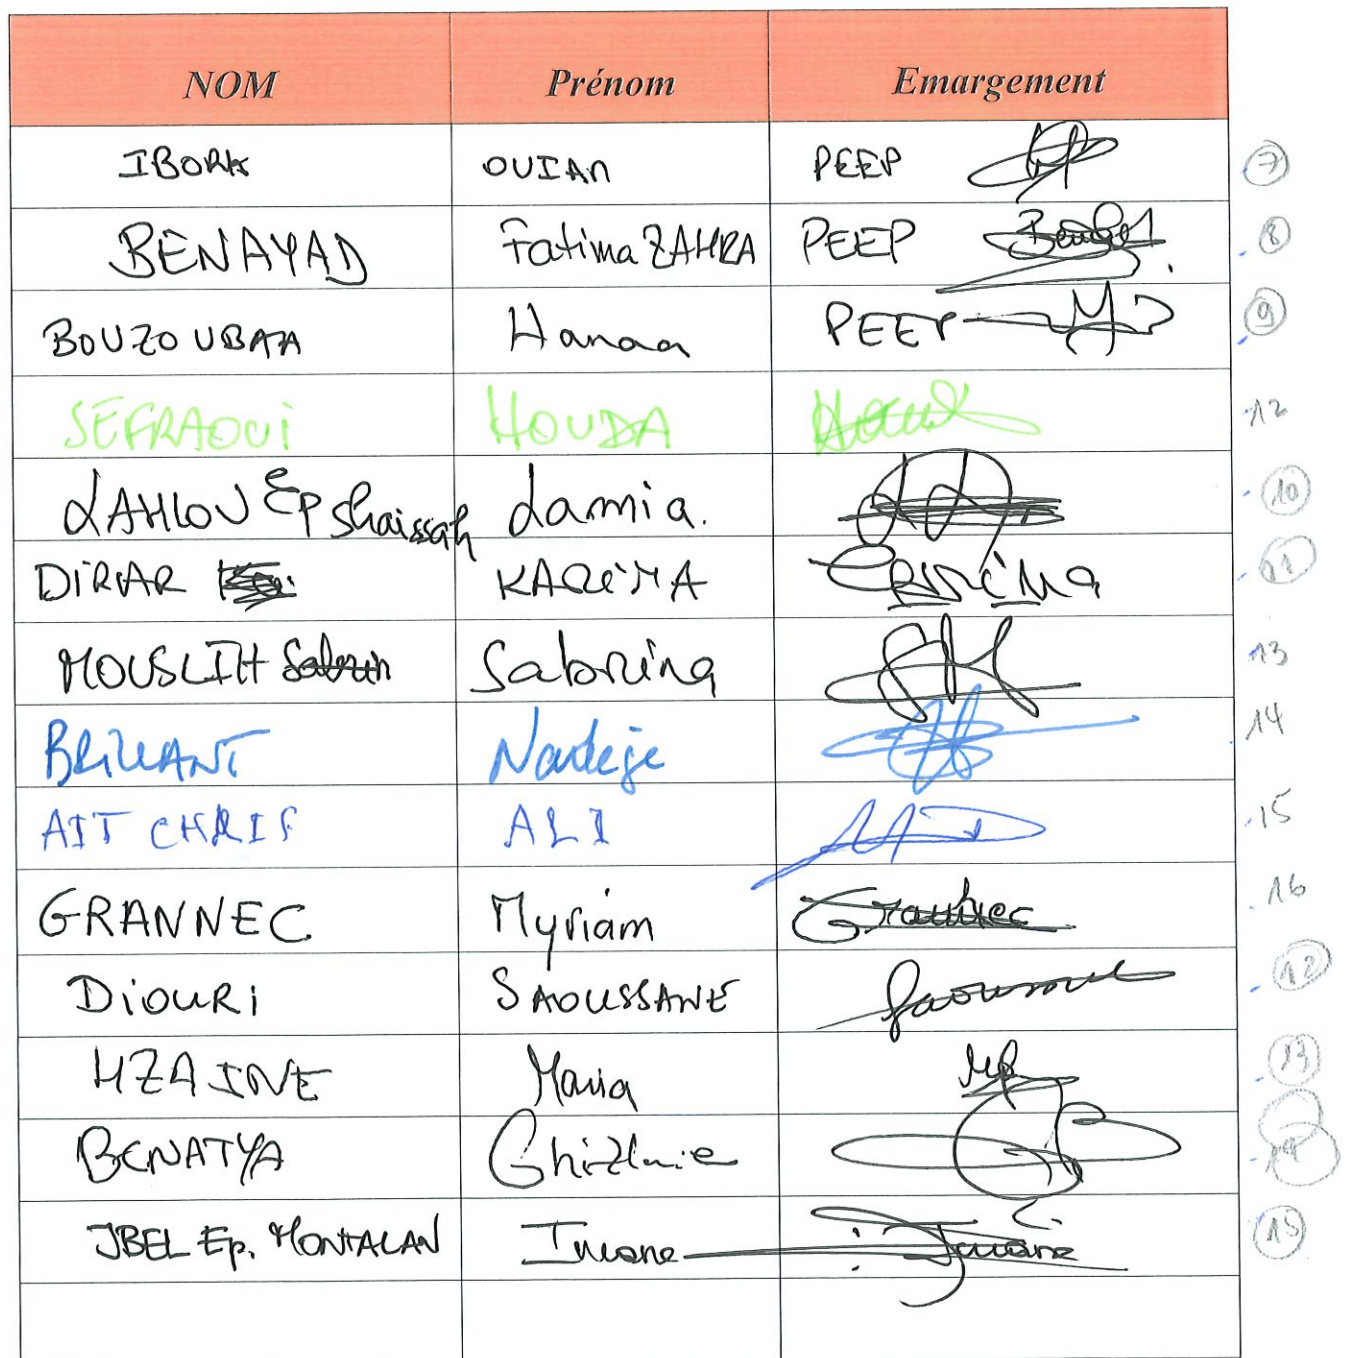 NOM Prénom Emargement
IBORK OUIAN PEEP 7
BENAYAD Fatima ZAHRA PEEP 8
BOUZOUBAA Hanaa PEEP 9
SEFRAOUI HOUDA 12
LAHLOU Ep Shaissah Lamia. 10
DIRAR KARIMA 11
MOUSLIH Sabrina 13
BRILLANT Nadège 14
AIT CHRIF ALI 15
GRANNEC Myriam Grannec 16
DiOURi SAOUSSANE 12
MZAINE Maria 13
BENATYA Ghizlaine 14
JBEL Ep. MONTALAN Imane Imane 15